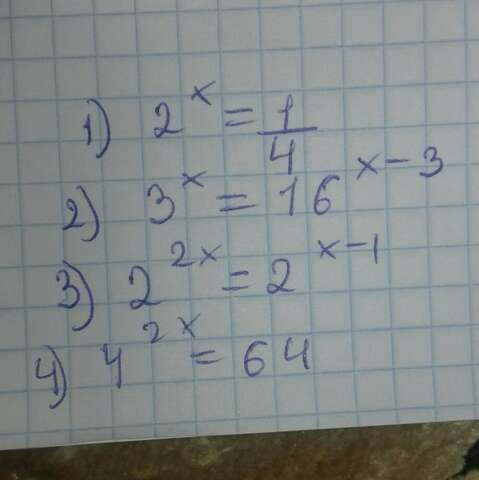 1) 2^x = 1/4
2) 3^x = 16^{x-3}
3) 2^{2x} = 2^{x-1}
4) 4^{2x} = 64